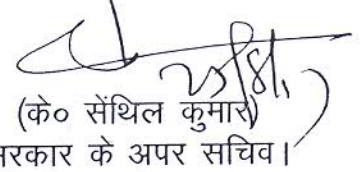 (के० सेंथिल कुमार)
सरकार के अपर सचिव।